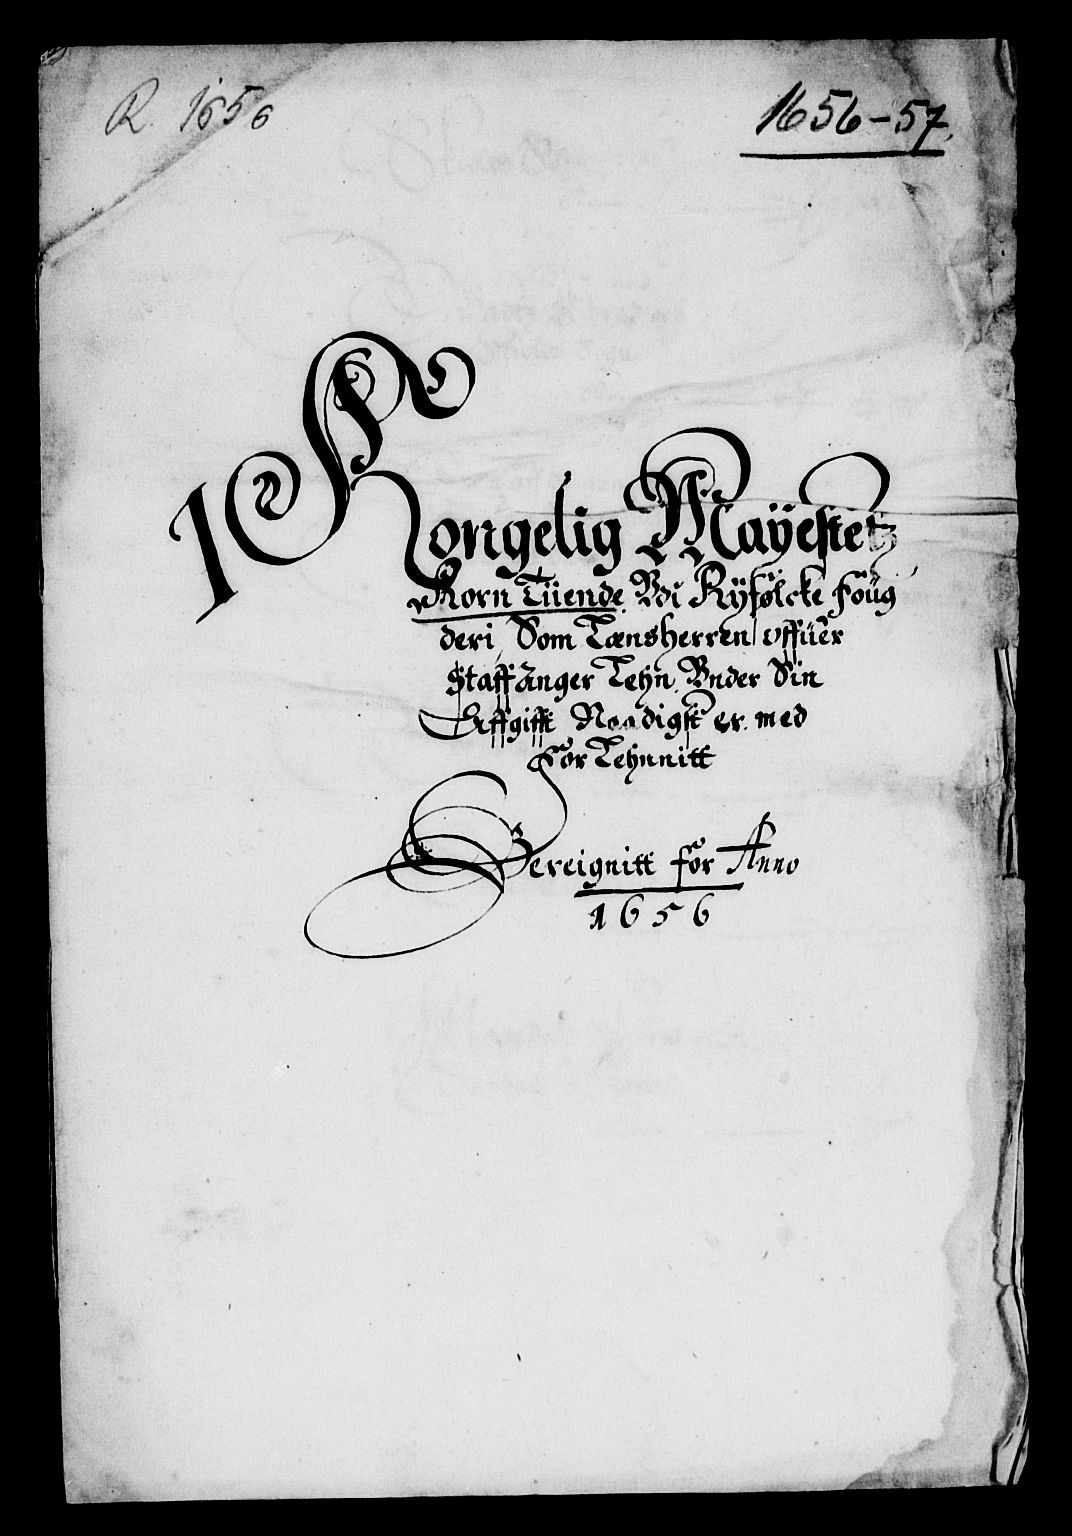 R. 1656
1656-57.
Kongelig Mayestetz
Korn Tüende Vdi Ryfølcke foüg
deri, Som Lænsherren offüer
Staffanger Lehn, Vnder Sin
Affgifft Naadigst er. med
for Lehnnitt
Bereignitt for Anno
1656